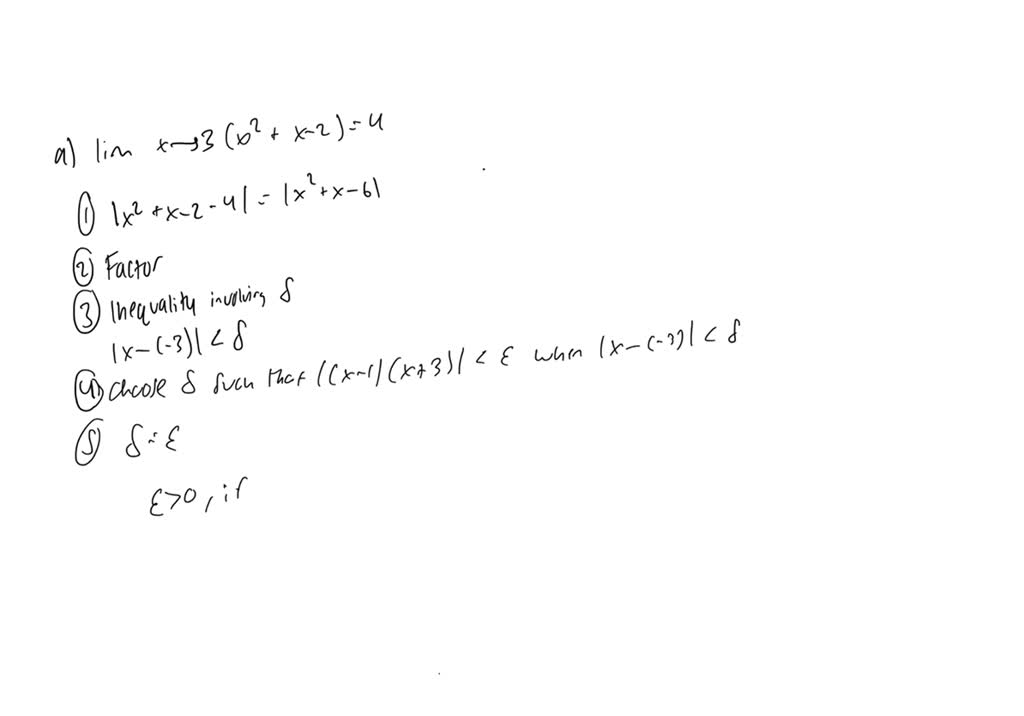 a) lim x→3 (x² + x-2) = 4
① |x² + x-2-4| = |x² + x-6|
② Factor
③ Inequality involving δ
|x-(-3)| < δ
④ choose δ such that |(x-1)(x+3)| < ε when |x-(-3)| < δ
⑤ δ = ε
ε>0, if